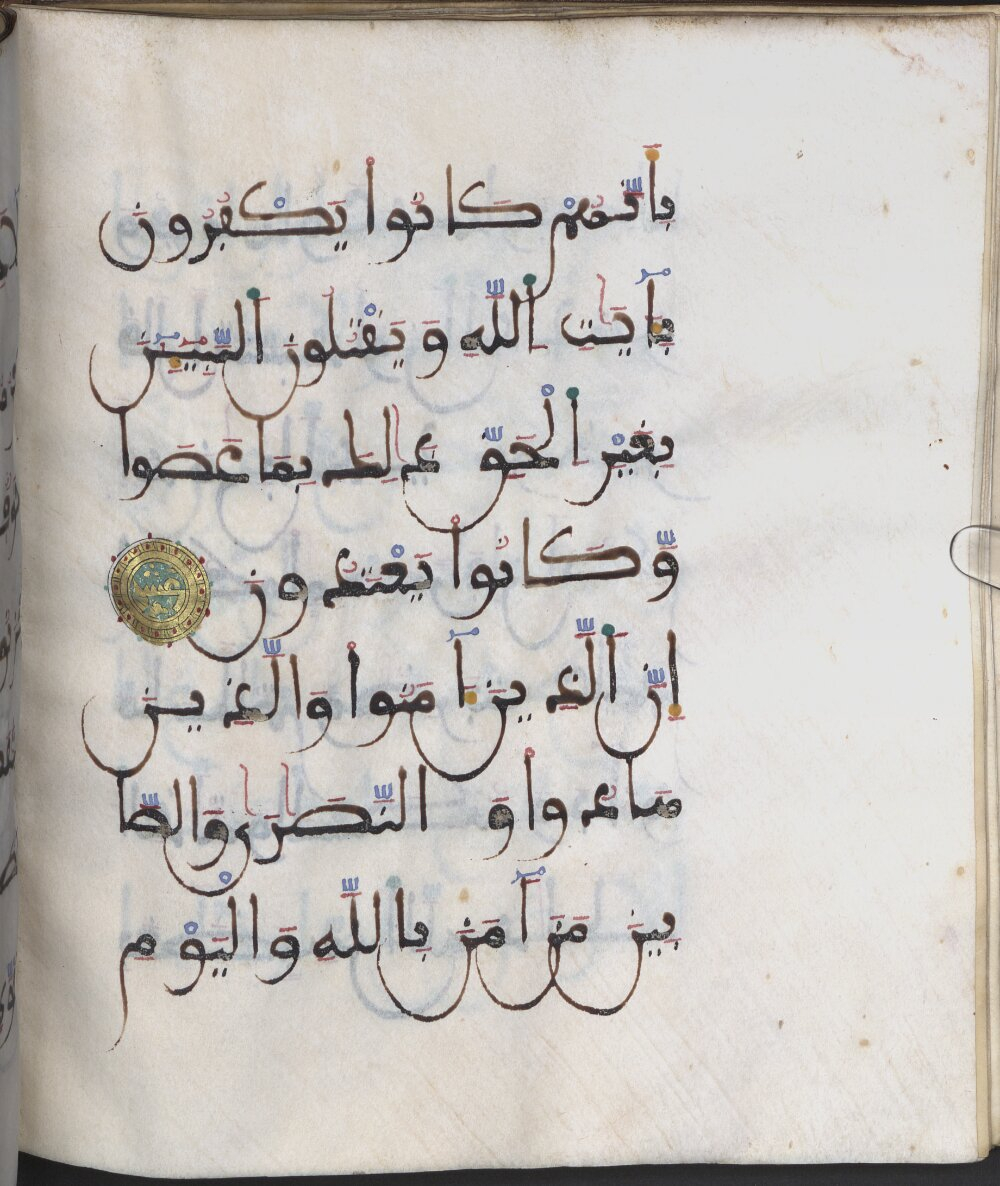 بِأَنَّهُمْ كَانُوا يَكْفُرُونَ
بِـَٔايَٰتِ اللَّهِ وَيَقْتُلُونَ النَّبِيـِٕينَ
بِغَيْرِ الْحَقِّ ذَٰلِكَ بِمَا عَصَوا
وَّكَانُوا يَعْتَدُونَ
إِنَّ الَّذِينَ ءَامَنُوا وَالَّذِينَ
هَادُوا وَالنَّصَٰرَىٰ وَالصَّٰ
بِينَ مَنْ ءَامَنَ بِاللَّهِ وَالْيَوْمِ